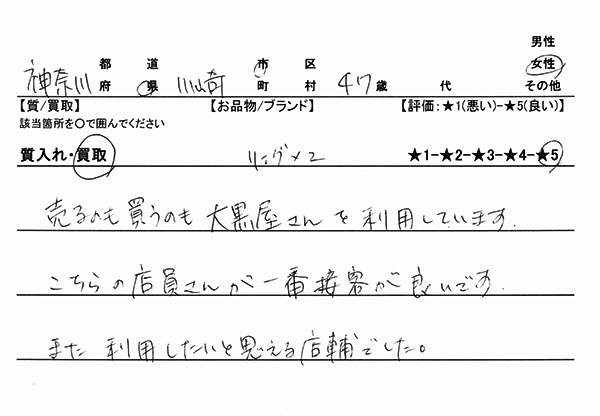 男性
都 道 市 区 女性
神奈川 府 県 川崎 町 村 47 歳 代 その他
【質/買取】 【お品物/ブランド】 【評価:★1(悪い)-★5(良い)】
該当箇所を○で囲んでください
質入れ・買取 リング×2 ★1-★2-★3-★4-★5
売るのも買うのも大黒屋さんを利用しています.
こちらの店員さんが一番接客が良いです.
また利用したいと思える店舗でした。